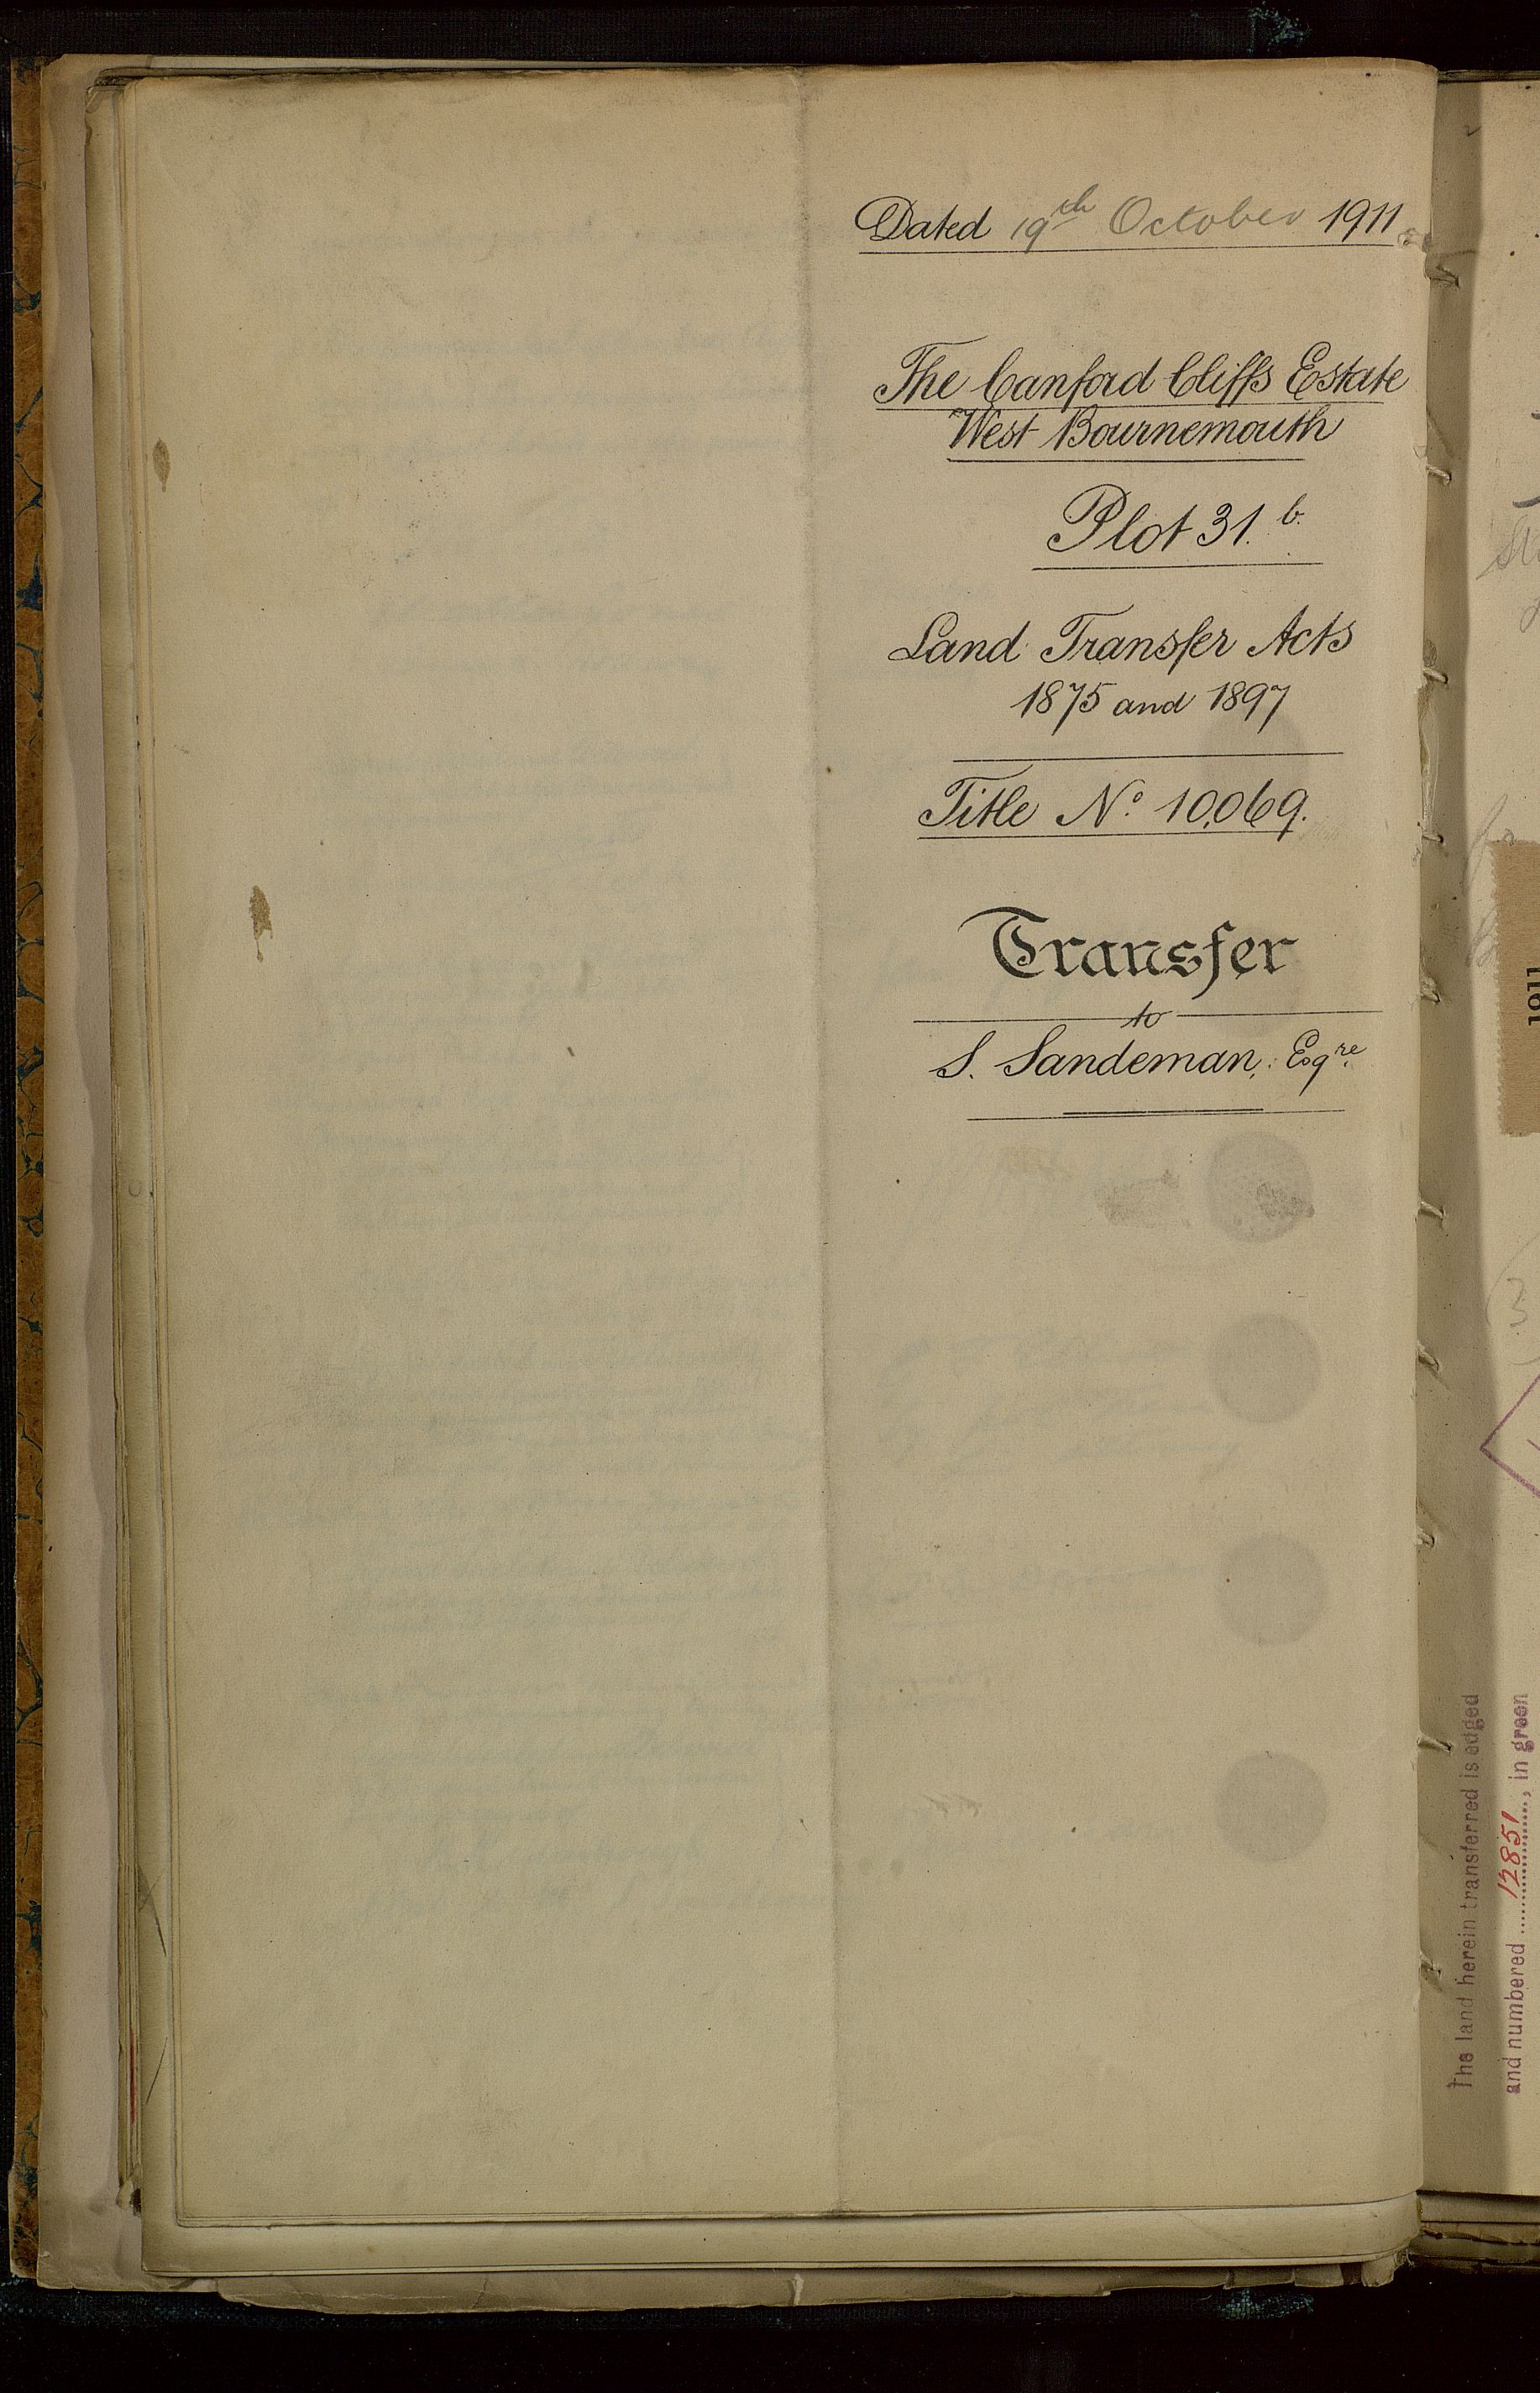 Dated 19th October 1911.
The Canford Cliffs Estate
West Bournemouth
Plot 31.b.
Land Transfer Acts
1875 and 1897
Title No. 10,069.
Transfer
to
S. Sandeman, Esqre.
1911
The land herein transferred is edged
and numbered 12851, in green